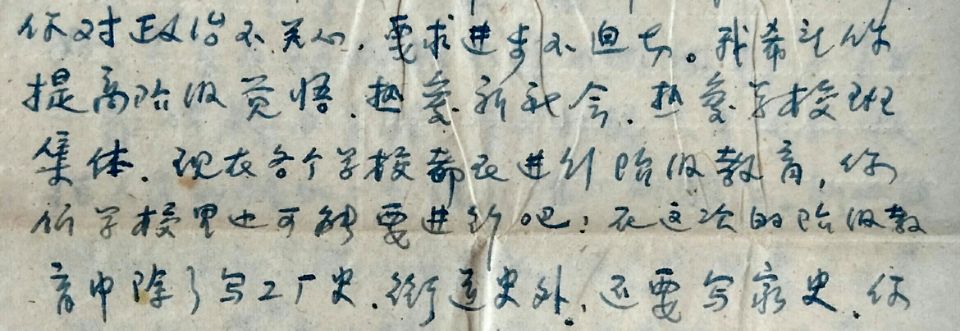 你对政治不关心，要求进步不迫切。我希望你
提高阶级觉悟，热爱新社会，热爱学校班
集体。现在各个学校都在进行阶级教育，你
们学校里也可能要进行吧！在这次的阶级教
育中除了写工厂史，街道史外，还要写家史，你